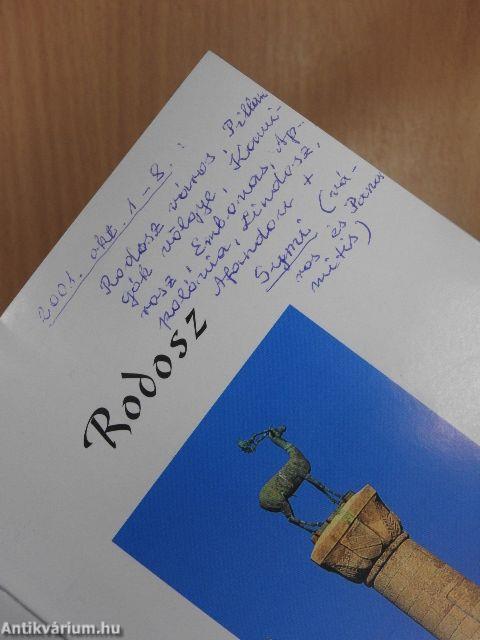 2001. okt. 1-8. :
Rodosz város, Pillan-
gók völgye, Kami-
rosz, Embonas, Ap..
polónia, Lindosz,
Afandou +
Symi (vá-
ros és Panor
mitis)
Rodosz
Antikvárium.hu